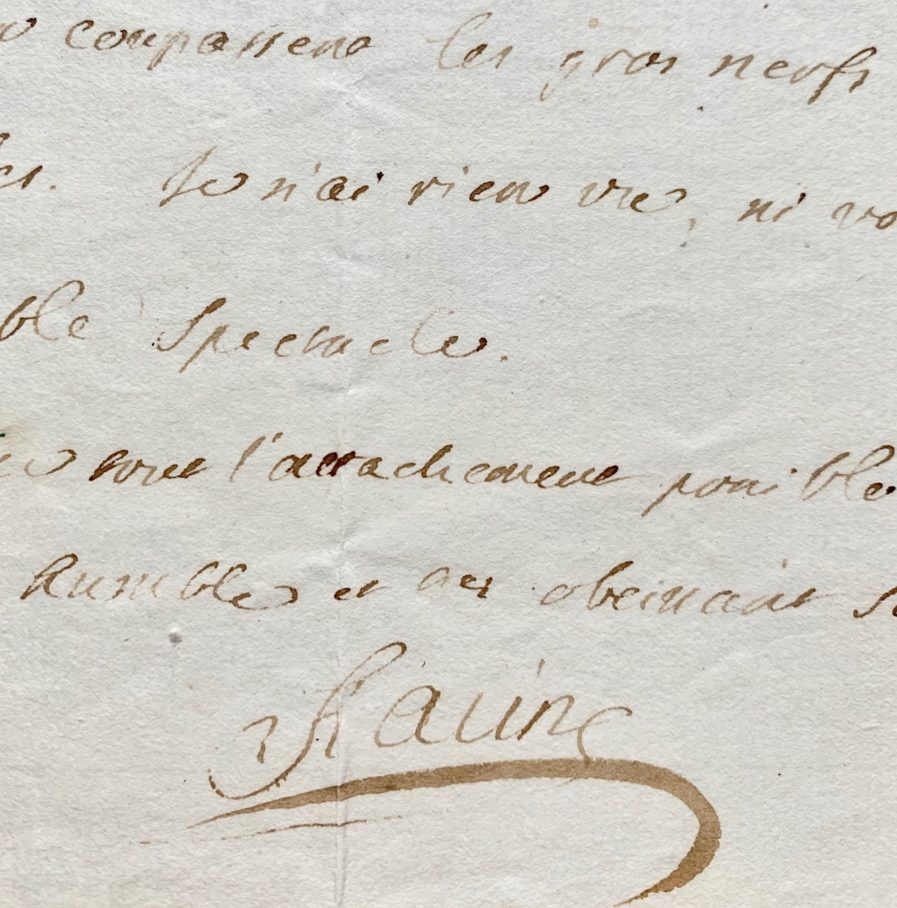 coupassent les gros nerfs
Je n'ai rien vu, ni vo
ble spectacle.
tout l'attachement possible
humble et tres obeissant